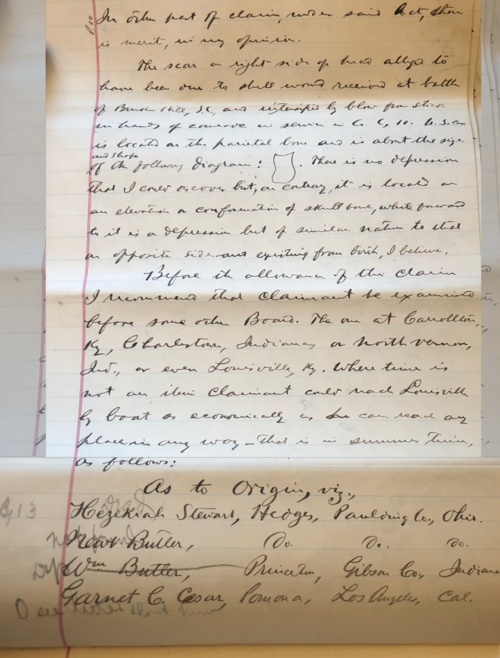 In other part of claim, under said Act, there
is merit, in my opinion.
The scar on right side of head alleged to
have been due to shell wound received at battle
of Bunker Hill, and intensified by blow from stick
in hands of comrade in service in U.S.
is located on the parietal bone and is about the size
and shape
of the following diagram: . There is no depression
that I could discover but, on contrary, it is located on
an elevation or conformation of skull bone, while forward
to it is a depression but of similar nature to that
on opposite side and existing from birth, I believe.
Before the allowance of this claim
I recommend that claimant be examined
before some other Board. The one at Carrollton,
Ky, Charlestown, Indiana or North Vernon,
Ind., or even Louisville, Ky. Where time is
not an item claimant could reach Louisville
by boat as economically as he can reach any
place in any way - that is in summer time,
as follows:
As to Origin, viz.,
Hezekiah Stewart, Hedges, Paulding Co., Ohio.
Newt Butler, Do. Do. Do.
Wm Butler, Princeton, Gibson Co., Indiana
Garnet C. Cesar, Pomona, Los Angeles, Cal.